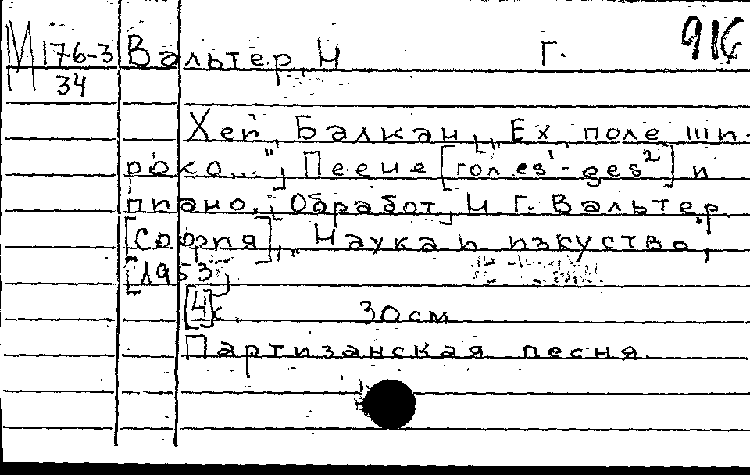 М 176-3 Вальтер, И Г. 916
34
Хей, Балкан,,, Ех, поле ши-
роко...", Песне [гол. es¹-ges²] и
пиано. Обработ. И Г. Вальтер
[София], "Наука и изкуство",
[1953]
[4]с 30 см
Партизанская песня.